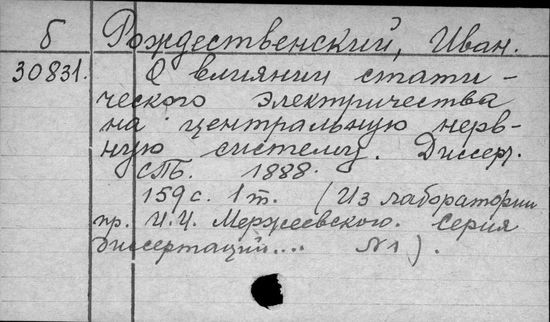 б Рождественский, Иван.
30831. О влиянии стати-
ческого электричества
на центральную нерв-
ную систему. Диссер.
СПб. 1888.
159 с. 1 т. (Из лаборатории
пр. И.И. Мержеевского. Серия
диссертаций.... №1).